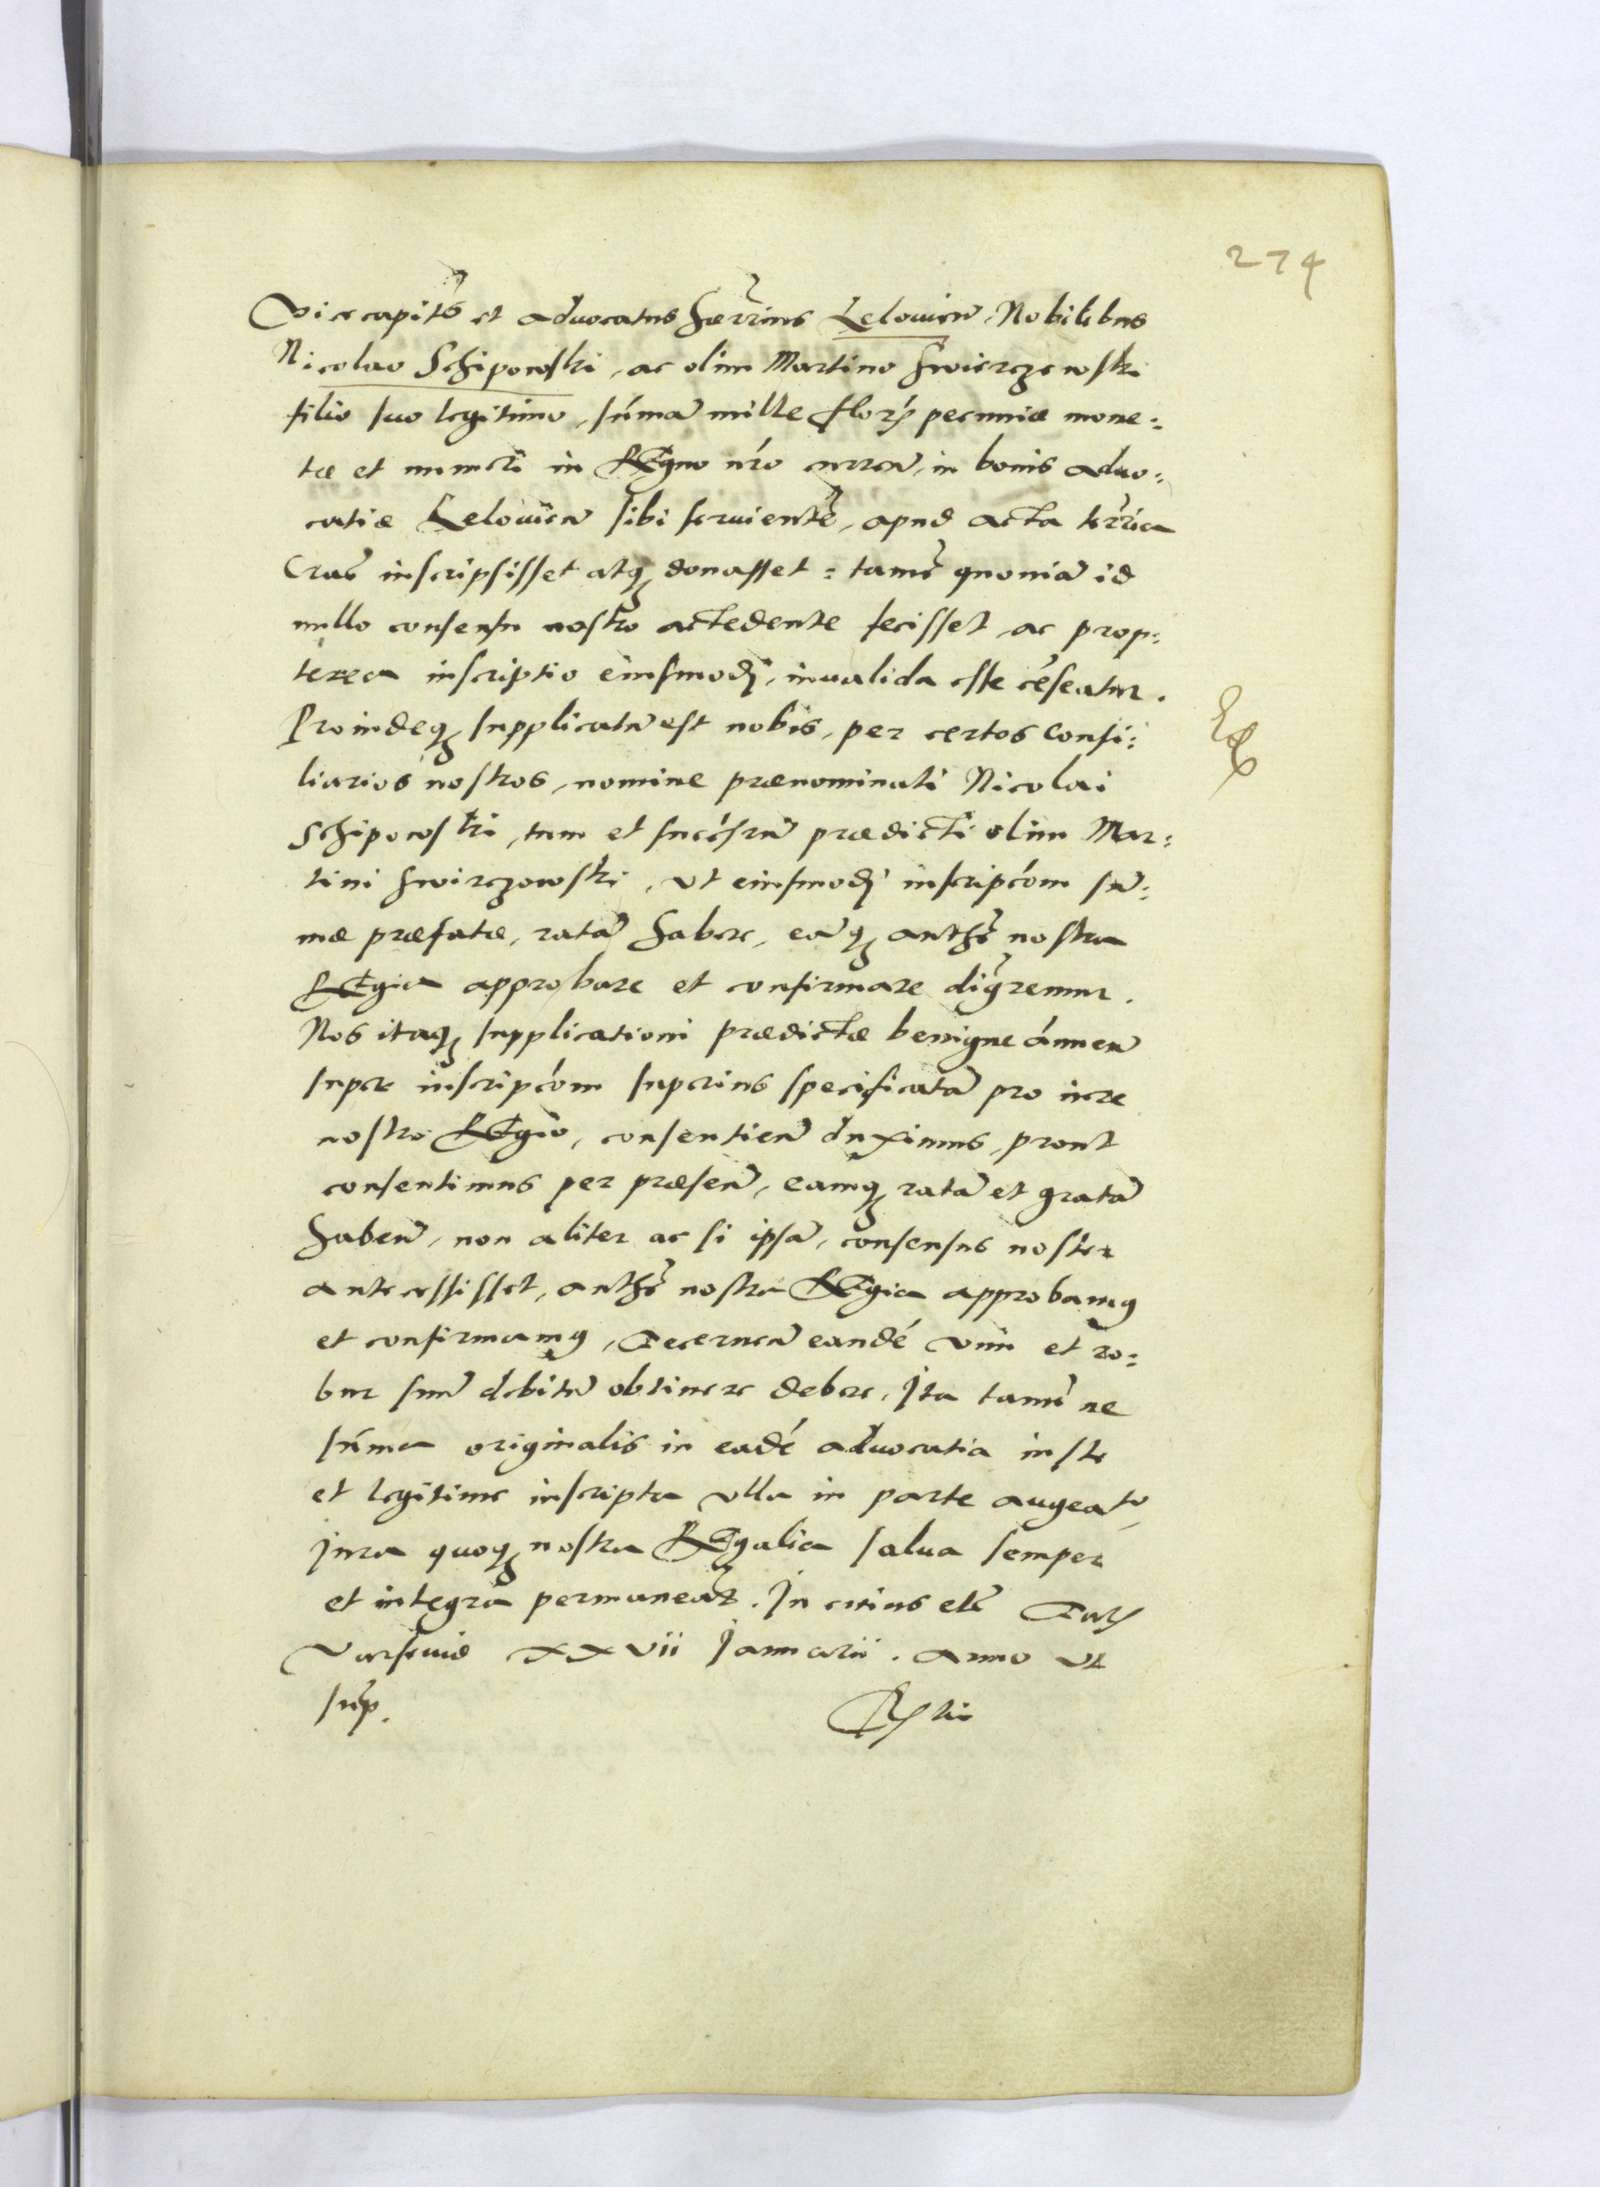 274
Vicecapitś et advocatus hærrius Leloviēn, Nobilibus
Nicolao Schipowski, ac olim Martino Swierczewski
filio suo legitimo, sūma mille floŕ pecuniæ mone:
tæ et numeri in REgno nŕo currēn, in bonis advo:
catiæ Leloviēn sibi servientē, apud acta terŕica
Craē inscripsisset atq donasset: tamē quoniā id
nullo consensu nostro accedente fecisset, ac prop:
terea inscriptio eiusmodj, invalida esse cēseatur.
Proindeq supplicatū est nobis, per certos Consi:
liarios nostros, nomine prænominati Nicolai
Schipowski, tum et succēsrū prædicti olim Mar:
tini Swirczowski, ut eiusmodj inscripćom sū:
mæ præfatæ, ratā habere, eāq authē nostra
REgia approbare et confirmare digremur.
Nos itaq supplicationi prædictæ benigne ánnuēn
super inscripćom superius specificatā pro iure
nostro REgio, consentiēn duximus, prout
consentimus per præsēn, eamq ratā et gratā
habēn, non aliter ac si ipsā, consensus noster
antecessisset, authē nostra REgia approbamq
et confirmamq, Decernēn eandē vim et ro:
bur suū debitū obtinere debere, Ita tamē ne
sūma originalis in eadē advocatia iuste
et legitime inscripta ulla in parte augeatr,
Jura quoq nostra REgalia salva semper
et integra permaneāt. In cuius eté Daŕ
Varsavię XXVII Januarii. Anno ut
sup.